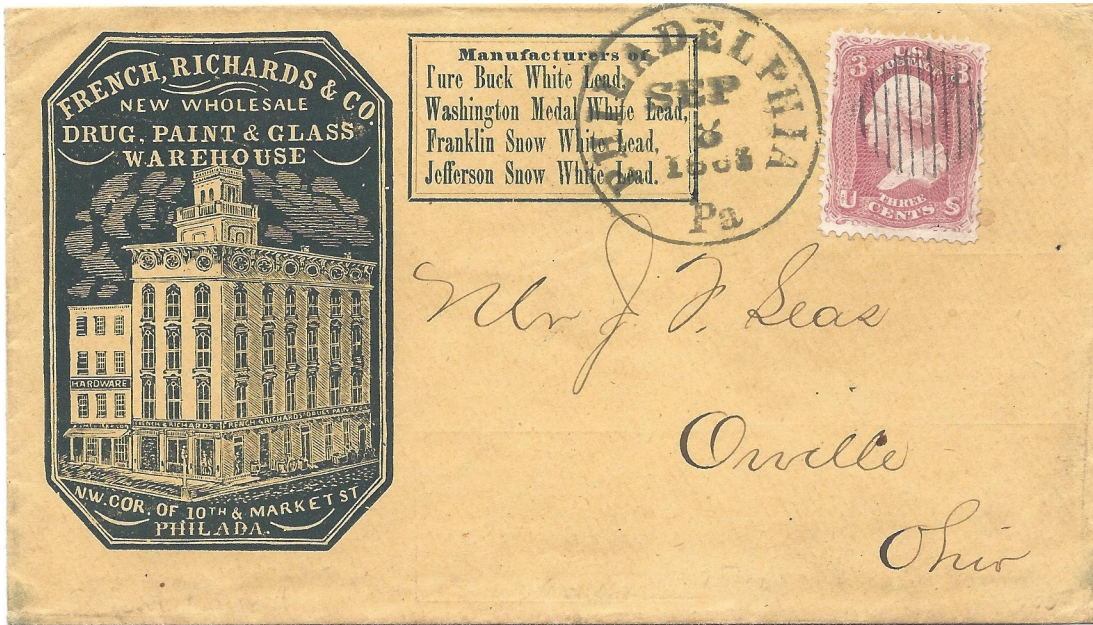 FRENCH, RICHARDS & CO
NEW WHOLESALE
DRUG, PAINT & GLASS
WAREHOUSE
HARDWARE
FRENCH & RICHARDS.
FRENCH & RICHARDS DRUGS PAINT
N.W. COR. OF 10TH & MARKET ST
PHILADA.
Manufacturers of
Pure Buck White Lead,
Washington Medal White Lead,
Franklin Snow White Lead,
Jefferson Snow White Lead.
PHILADELPHIA
SEP
8
Pa
3 U.S. 3
POSTAGE
U THREE S
CENTS
Mr J. F. Seas
Orville
Ohio